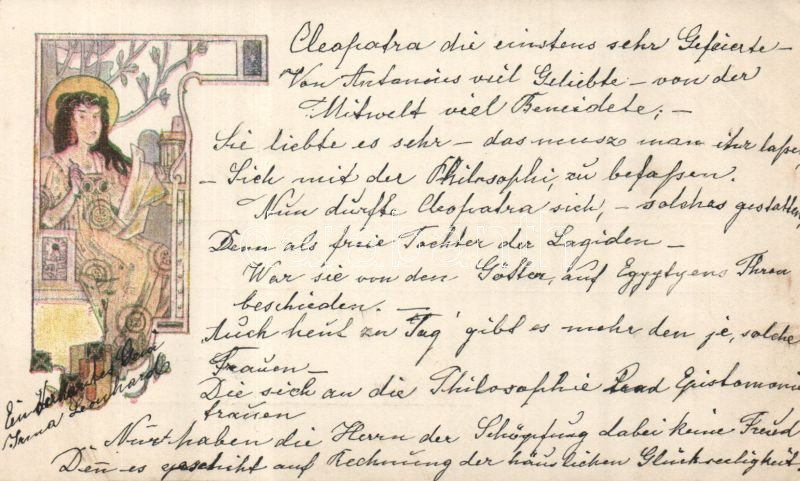 Cleopatra die einstens sehr Gefeierte –
Von Antonius viel Geliebte – von der
Mitwelt viel Beneidete; –
Sie liebte es sehr – das musz man ihr laße
– Sich mit der Philosophi, zu befaßen.
Nun durfte Cleopatra sich, – solches gestatten,
Denn als freie Tochter der Lagiden –
War sie von den Götter, auf Egyptyens Thron
beschieden. –
Auch heut zu Tag' gibt es mehr den je, solche
Frauen –
Die sich an die Philosophie Epistomonie
trauen
Nur haben die Herrn der Schöpfung dabei keine Freud
Deñ es geschiht auf Rechnung der häuslichen Glückseeligkeit –
Ein
Irma Leonhard